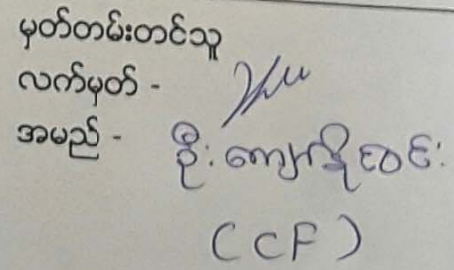 မှတ်တမ်းတင်သူ
လက်မှတ် -
အမည် - ဦးကျော်စိုးဝင်း
(CF)